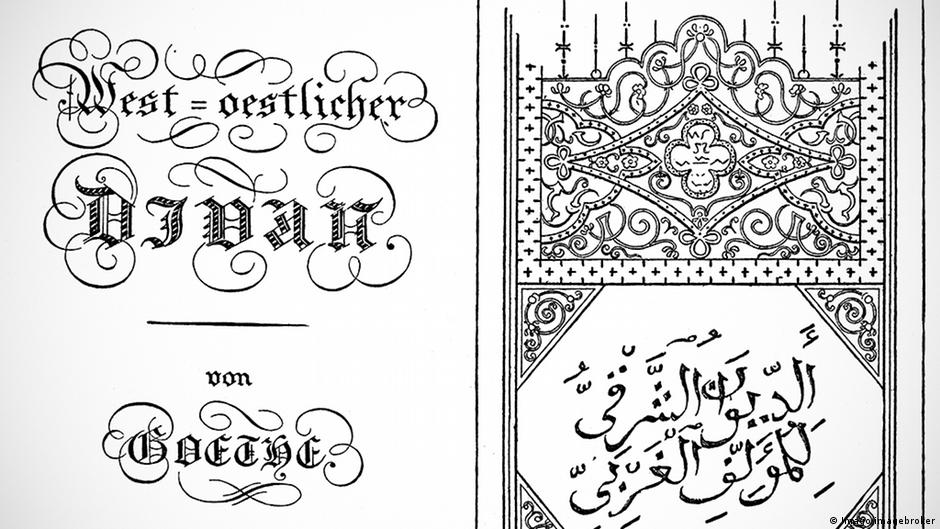 West=oestlicher
DIVAN.
von
GOETHE.
أَلدِّيوَانُ الشَّرْقِيُّ
لِلْمُؤَلِّفِ الْغَرْبِيِّ
© Imago/imagebroker